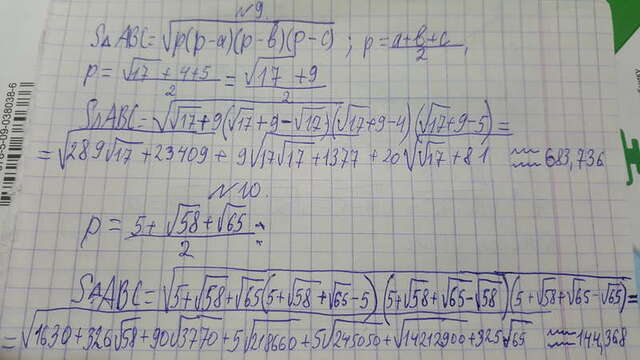 N9.
S△ABC = √p(p-a)(p-b)(p-c) ; p = a+b+c/2 ,
p = √17+4+5/2 = √17+9/2
S△ABC = √(√17+9)(√17+9-√17)(√17+9-4)(√17+9-5) =
= √289√17 + 23409 + 9√17√17 + 1377 + 20√17 + 81 ≈ 683,736
N10.
p = 5+√58+√65/2
S△ABC = √5+√58+√65(5+√58+√65-5)(5+√58+√65-√58)(5+√58+√65-√65) =
= √1630 + 326√58 + 90√3770 + 5√18660 + 5√245050 + √14212900 + 325√65 ≈ 144,368
09-038038-6